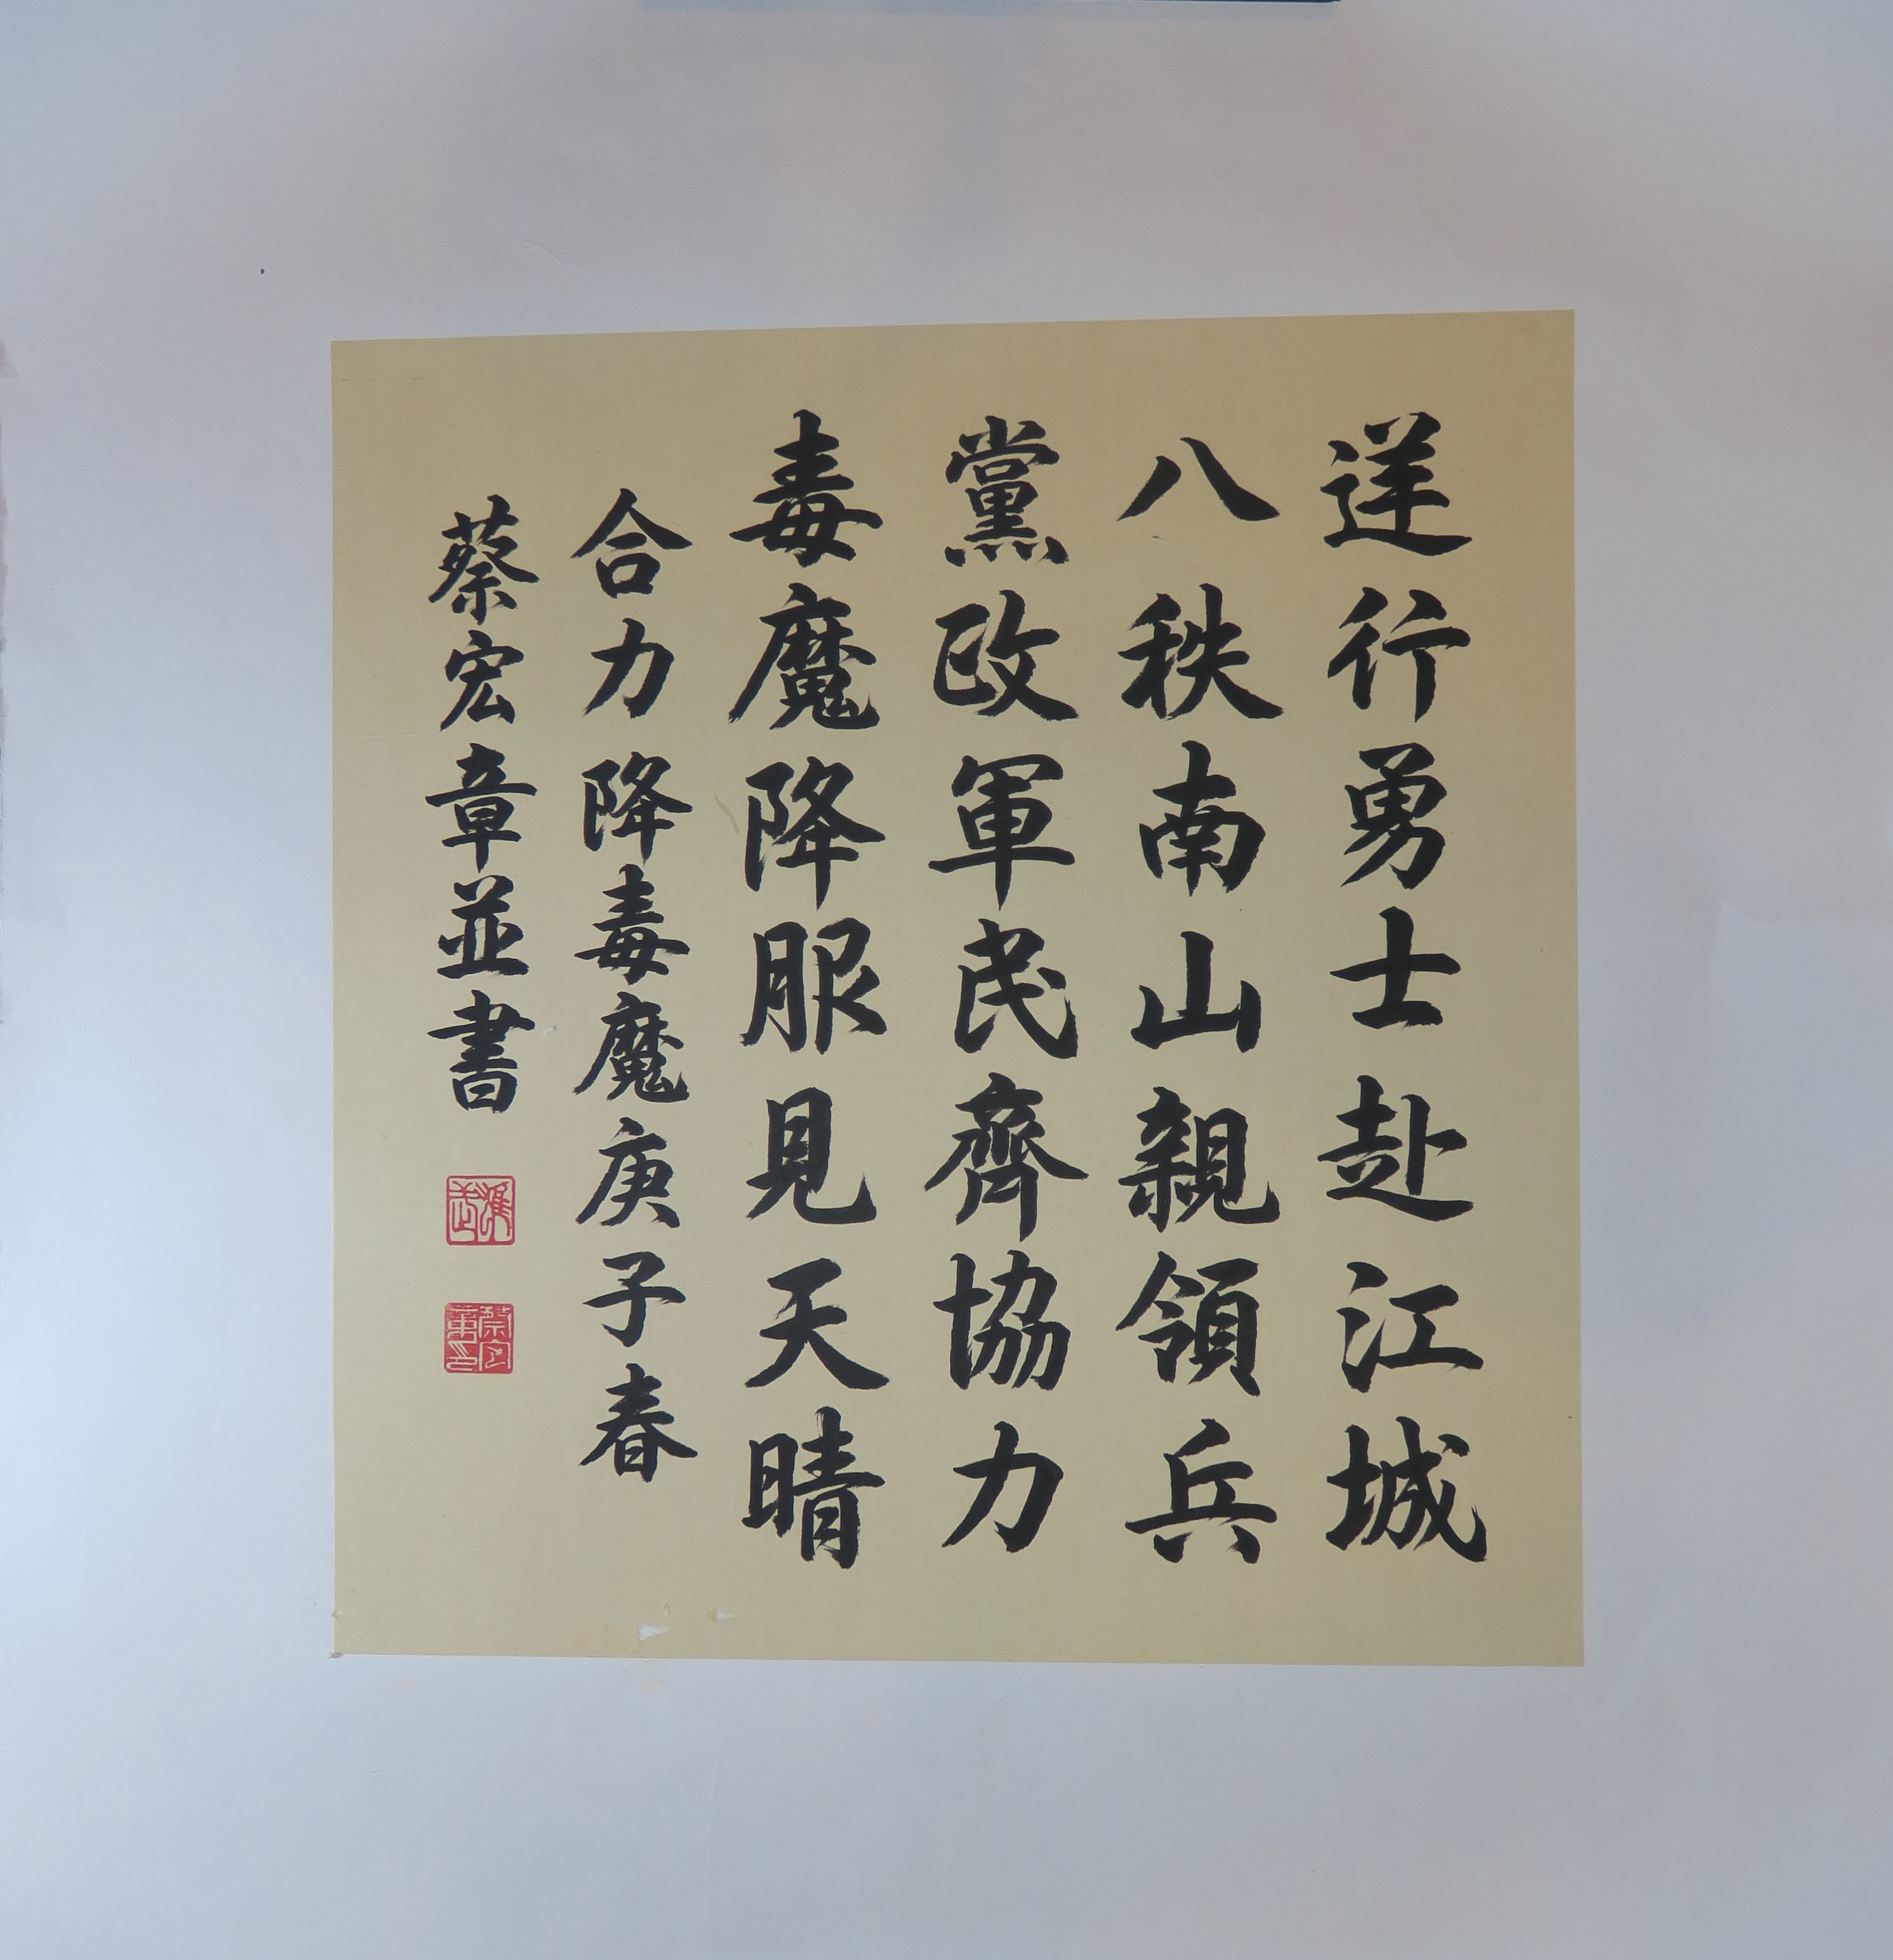 逆行勇士赴江城
八秩南山親領兵
黨政軍民齊協力
毒魔降服見天晴
合力降毒魔庚子春
蔡宏章並書